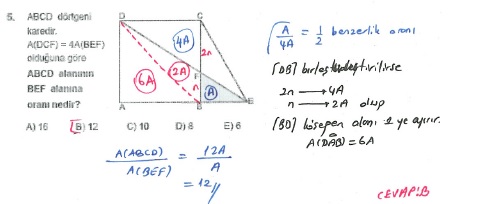 5. ABCD dörtgeni
karedir.
A(DCF) = 4A(BEF)
olduğuna göre
ABCD alanının
BEF alanına
oranı nedir?
A) 16 B) 12 C) 10 D) 8 E) 6
D C
4A
2n
6A 2A F
n A
A B E
A(ABCD) / A(BEF) = 12A / A
= 12//
√A/4A = 1/2 benzerlik oranı
[DB] birleştirilirse
2n → 4A
n → 2A olup
[BD] köşegen alanı 2 ye ayırır.
A(DAB) = 6A
CEVAP:B